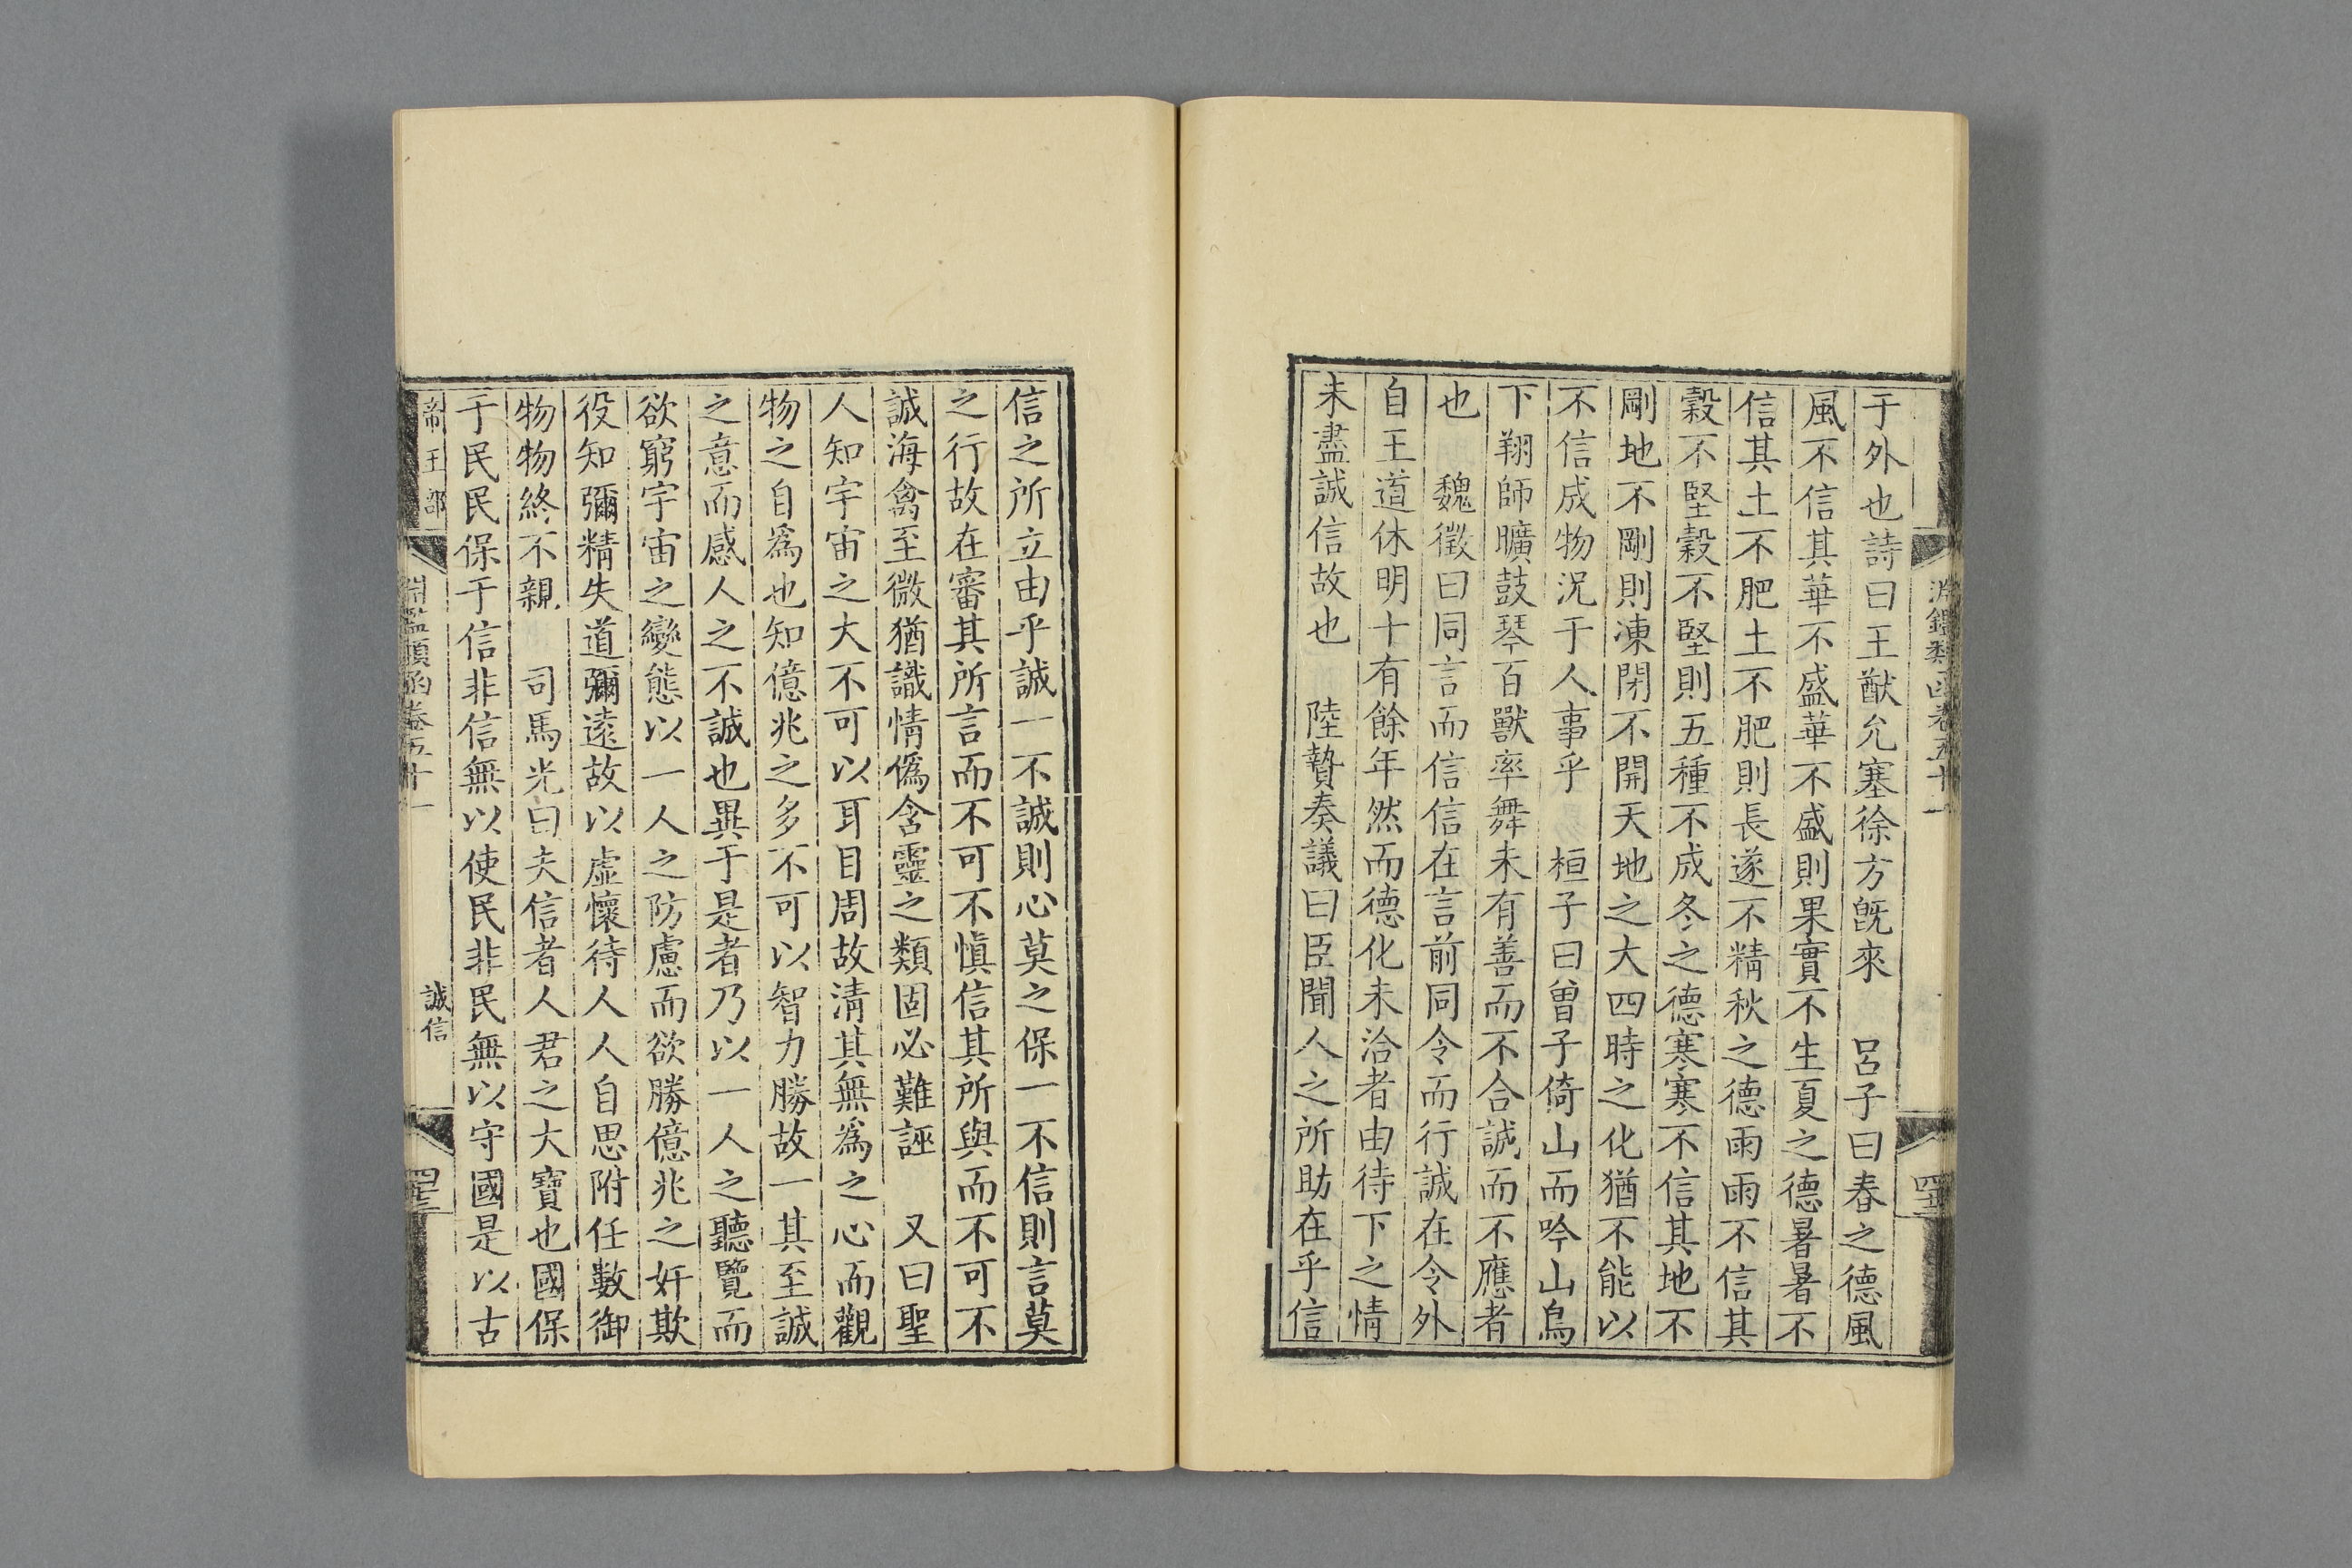 于外也詩曰王猷允塞徐方旣來　呂子曰春之德風
風不信其華不盛華不盛則果實不生夏之德暑暑不
信其土不肥土不肥則長遂不精秋之德雨雨不信其
穀不堅穀不堅則五種不成冬之德寒寒不信其地不
剛地不剛則凍閉不開天地之大四時之化猶不能以
不信成物況于人事乎　桓子曰曾子倚山而吟山鳥
下翔師曠鼓琴百獸率舞未有善而不合誠而不應者
也　魏徵曰同言而信信在言前同令而行誠在令外
自王道休明十有餘年然而德化未洽者由待下之情
未盡誠信故也　陸贄奏議曰臣聞人之所助在乎信
信之所立由乎誠一不誠則心莫之保一不信則言莫
之行故在審其所言而不可不愼信其所與而不可不
誠海禽至微猶識情僞含靈之類固必難誣　又曰聖
人知宇宙之大不可以耳目周故淸其無爲之心而觀
物之自爲也知億兆之多不可以智力勝故一其至誠
之意而感人之不誠也異于是者乃以一人之聽覽而
欲窮宇宙之變態以一人之防慮而欲勝億兆之奸欺
役知彌精失道彌遠故以虛懷待人人自思附任數御
物物終不親　司馬光曰夫信者人君之大寶也國保
于民民保于信非信無以使民非民無以守國是以古
帝王部　淵鑑類函卷五十一　誠信　四十三